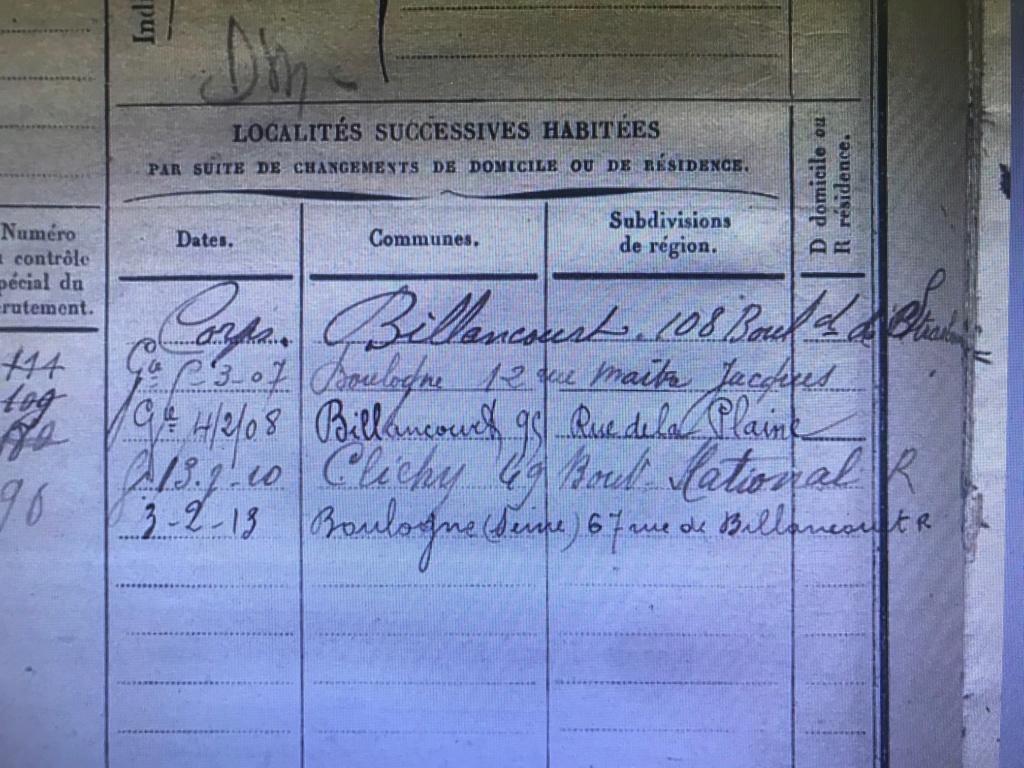 Ind
Dom
LOCALITÉS SUCCESSIVES HABITÉES
PAR SUITE DE CHANGEMENTS DE DOMICILE OU DE RÉSIDENCE.
D domicile ou
R résidence.
Numéro
contrôle
pécial du
rutement.
Dates.
Communes.
Subdivisions
de région.
Corps. Billancourt. 108 Boul d de Strasbourg
111 3-07 Boulogne 12 rue Maitre Jacques
109 Gie 4/2/08 Billancourt 95 Rue de la Plaine
Clichy 49 Boult National R
96 3-2-13 Boulogne (Seine) 67 rue de Billancourt R